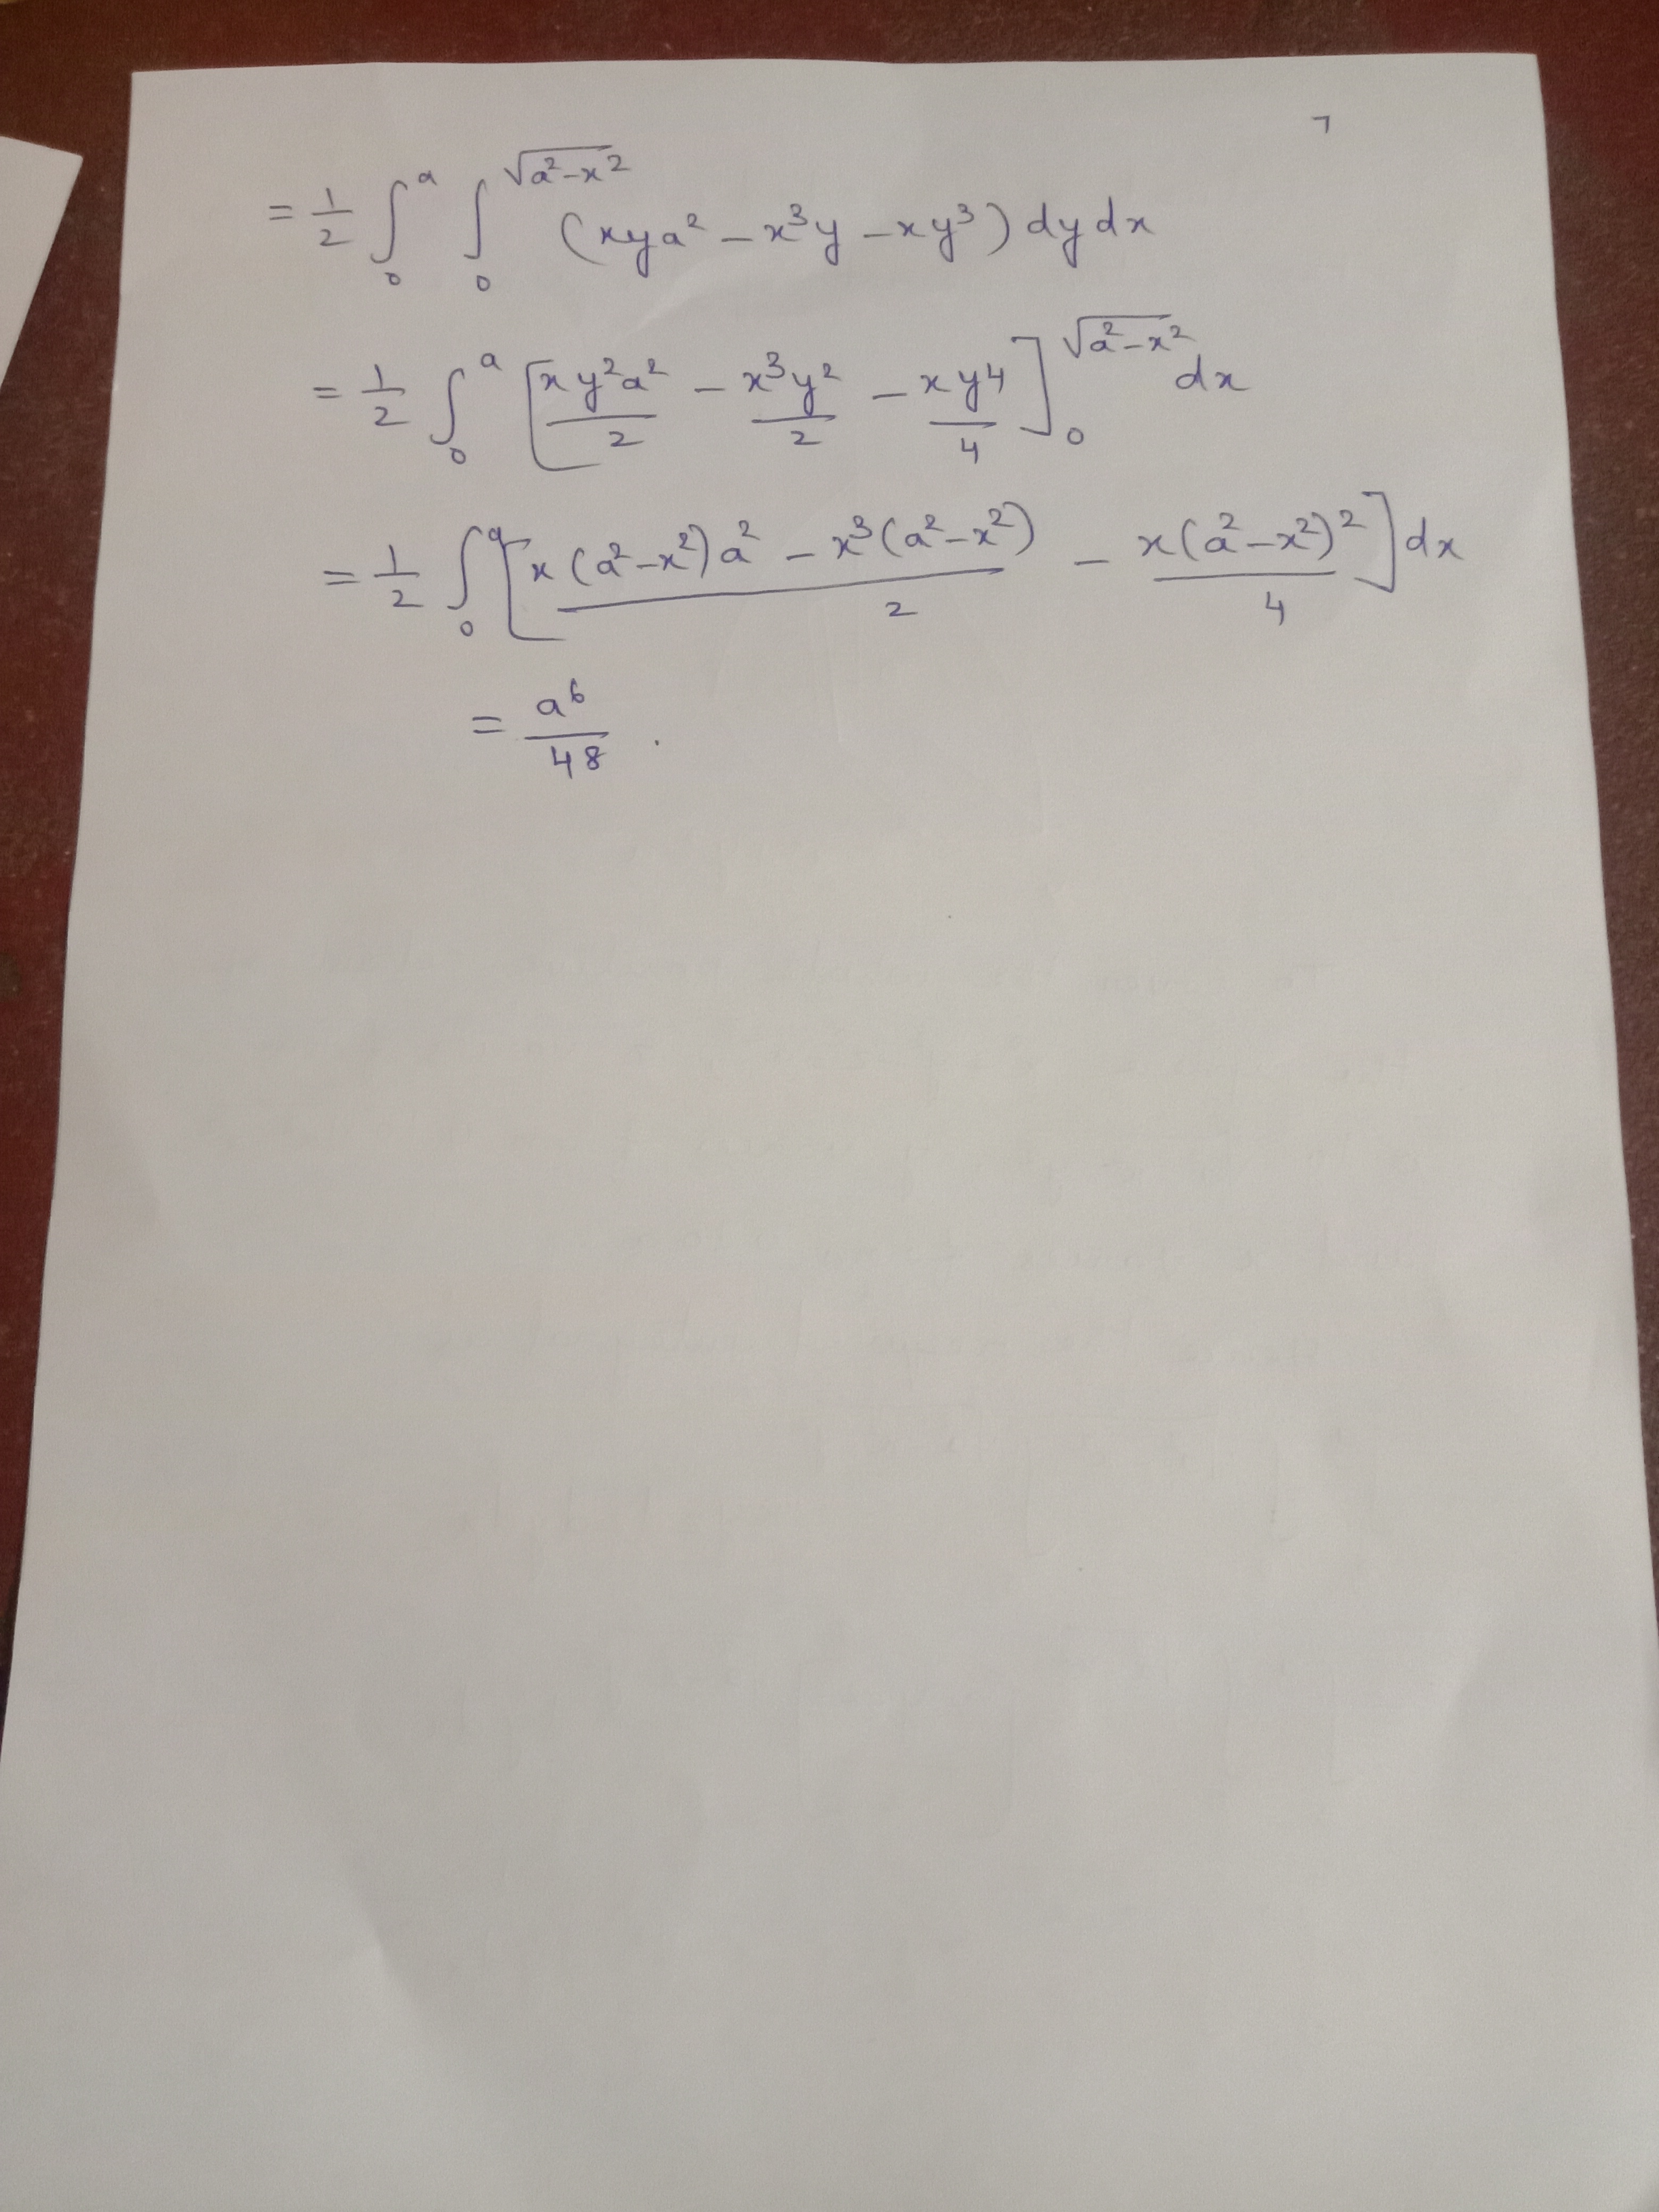 7
= 1/2 ∫₀^a ∫₀^√(a²-x²) (xya² - x³y - xy³) dy dx
= 1/2 ∫₀^a [xy²a²/2 - x³y²/2 - xy⁴/4]₀^√(a²-x²) dx
= 1/2 ∫₀^a [(x(a²-x²)a² - x³(a²-x²))/2 - x(a²-x²)²/4] dx
= a⁶/48 .